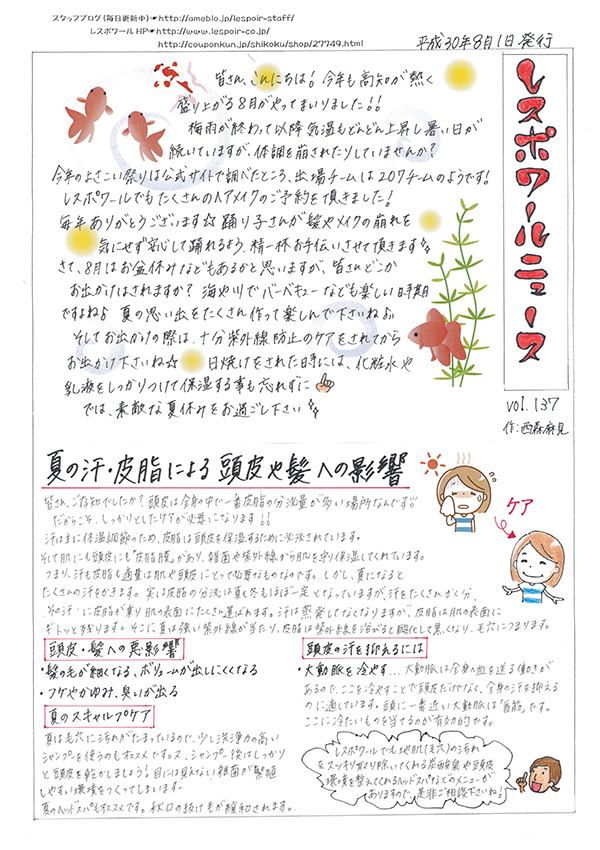 スタッフブログ（毎日更新中）☞http://ameblo.jp/lespoir-staff/
レスポワール HP☞http://www.lespoir-co.jp/
http://couponkun.jp/shikoku/shop/27749.html
平成30年8月1日 発行
レスポワールニュース
vol.137
作：西森麻見
皆さん、こんにちは！今年も高知が熱く
盛り上がる8月がやってまいりました!!
梅雨が終わって以降気温もどんどん上昇し暑い日が
続いていますが、体調を崩されたりしていませんか？
今年のよさこい祭りは公式サイトで調べたところ、出場チームは207チームのようです！
レスポワールでもたくさんのヘアメイクのご予約を頂きました！
毎年ありがとうございます☆踊り子さんが髪やメイクの崩れを
気にせず安心して踊れるよう、精一杯お手伝いさせて頂きます
さて、8月はお盆休みなどもあるかと思いますが、皆さんどこか
お出かけはされますか？海や川でバーベキューなども楽しい時期
ですよね♪夏の思い出をたくさん作って楽しんで下さいね♪
そしてお出かけの際は、十分紫外線防止のケアをされてから
お出かけ下さいね☆日焼けをされた時には、化粧水や
乳液をしっかりつけて保湿する事も忘れずに
では、素敵な夏休みをお過ごし下さい
夏の汗・皮脂による頭皮や髪への影響
皆さん、ご存知でしたか？頭皮は全身の中で一番皮脂の分泌量が多い場所なんです!!
だからこそ、しっかりとしたケアが必要になります!!
汗は主に体温調節のため、皮脂は頭皮を保湿するために必泌されています。
そして肌にも頭皮にも"皮脂膜"があり、雑菌や紫外線から肌を守り保湿してくれています。
つまり、汗も皮脂も適量は肌や頭皮にとって必要なものなのです。しかし、夏になると
たくさんの汗をかきます。実は皮脂の分泌は夏も冬もほぼ一定となっていますが、汗をたくさんかく分、
その汗に皮脂が乗り肌の表面にたくさん運ばれます。汗は蒸発してなくなりますが、皮脂は肌の表面に
ギトッと残ります。そこに夏は強い紫外線が当たり、皮脂は紫外線を浴びると酸化して黒くなり、毛穴につまります。
ケア
頭皮・髪への悪影響
・髪の毛が細くなる、ボリュームが出しにくくなる
・フケやかゆみ、臭いが出る
夏のスキャルプケア
夏は毛穴に汚れがたまっているので、少し洗浄力の高い
シャンプーを使うのもオススメです。又、シャンプー後はしっかり
と頭皮を乾かしましょう！目には見えない雑菌が繁殖
しやすい環境をつくってしまいます。
夏のヘッドスパもオススメです。秋口の抜け毛が緩和されます。
頭皮の汗を抑えるには
・大動脈を冷やす…大動脈は全身へ血を送る働きが
あるので、ここを冷やすことで頭皮だけでなく、全身の汗を抑える
のに適しています。頭に一番近い大動脈は"首筋"です。
ここに冷たいものを当てるのが有効的です。
レスポワールでも地肌（毛穴）の汚れ
をスッキリ取り除いてくれる炭酸泉や頭皮
環境を整えてくれるヘッドスパなどのメニューが
ありますので、是非ご相談下さいね！